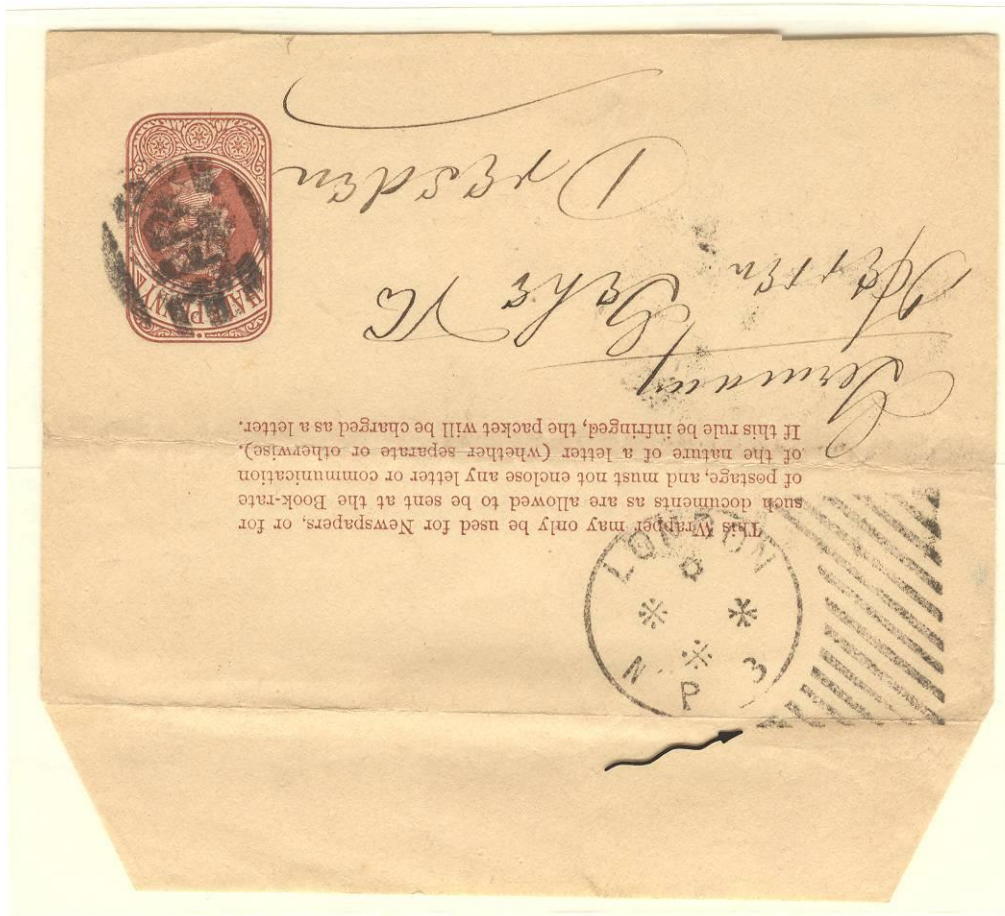 LONDON
N. P 3
This Wrapper may only be used for Newspapers, or for
such documents as are allowed to be sent at the Book-rate
of postage, and must not enclose any letter or communication
of the nature of a letter (whether separate or otherwise).
If this rule be infringed, the packet will be charged as a letter.
Germany
Herren Gehe & Co
Dresden
HALFPENNY